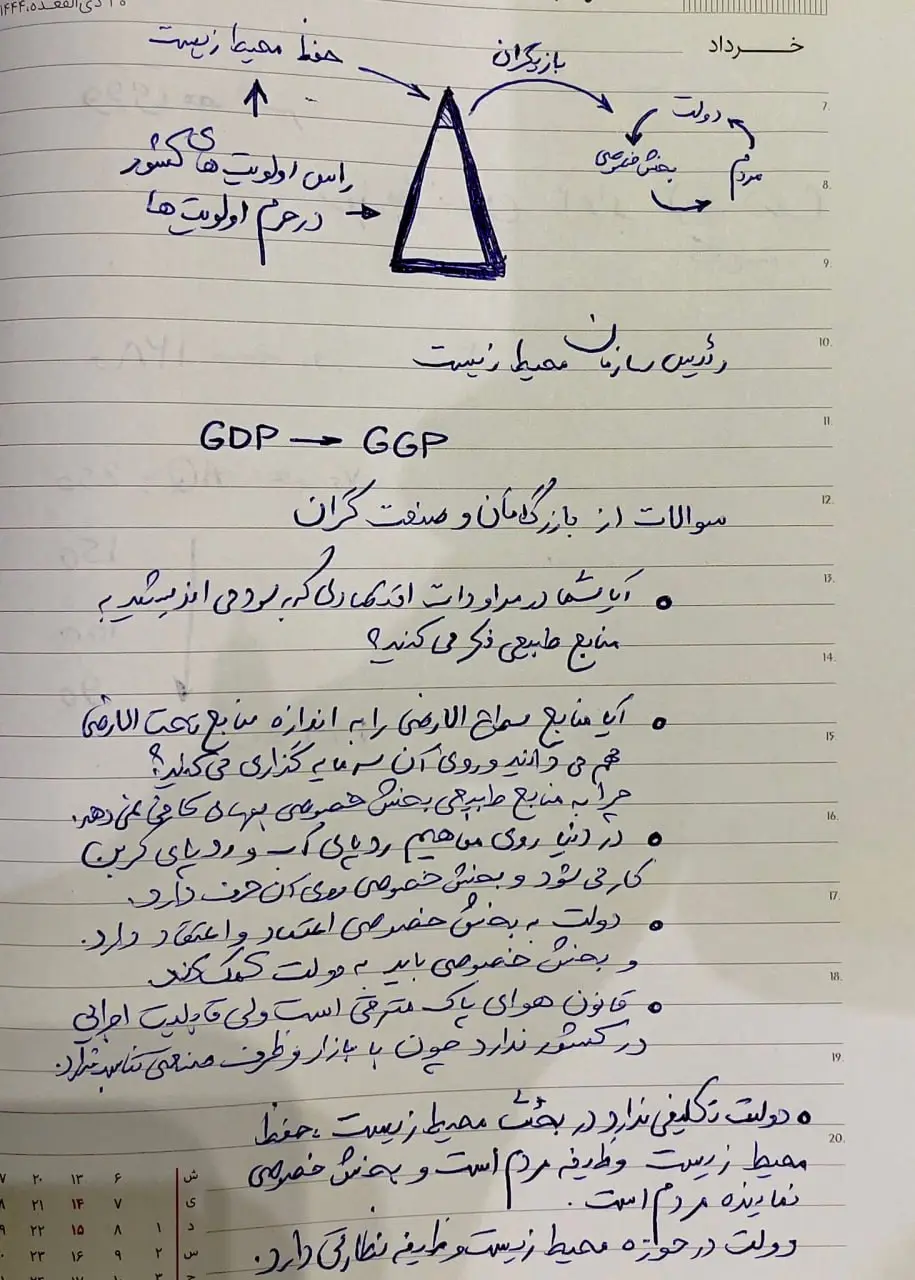 ذی‌القعده ۱۴۴۴
خــرداد
حفظ محیط زیست
بازیگران
دولت
بخش خصوصی
مردم
راس اولویت های کشور
در هرم اولویت ها
رئیس سازمان محیط زیست
GDP → GGP
سوالات از بازرگانان و صنعت گران
• آیا شما در مراودات اقتصادی که به سود می اندیشید به
منابع طبیعی فکر می کنید؟
• آیا منابع سطح الارضی را به اندازه منابع تحت الارضی
مهم می دانید و روی آن سرمایه گذاری می کنید؟
چرا به منابع طبیعی بخش خصوصی بهای کافی نمی دهد.
• در دنیا روی مفاهیم ردپای آب و ردپای کربن
کار می شود و بخش خصوصی روی آن حرف دارد.
• دولت به بخش خصوصی اعتماد و اعتقاد دارد.
و بخش خصوصی باید به دولت کمک کند.
• قانون هوای پاک مترقی است ولی قابلیت اجرایی
در کشور ندارد چون با بازار و ظرف صنعتی تناسب ندارد.
• دولت تکلیفی ندارد در بحث محیط زیست، حفظ
محیط زیست وظیفه مردم است و بخش خصوصی
نماینده مردم است.
دولت در حوزه محیط زیست وظیفه نظارتی دارد.
7.
8.
9.
10.
11.
12.
13.
14.
15.
16.
17.
18.
19.
20.
ش ۶ ۱۳ ۲۰
ی ۷ ۱۴ ۲۱
د ۱ ۸ ۱۵ ۲۲
س ۲ ۹ ۱۶ ۲۳